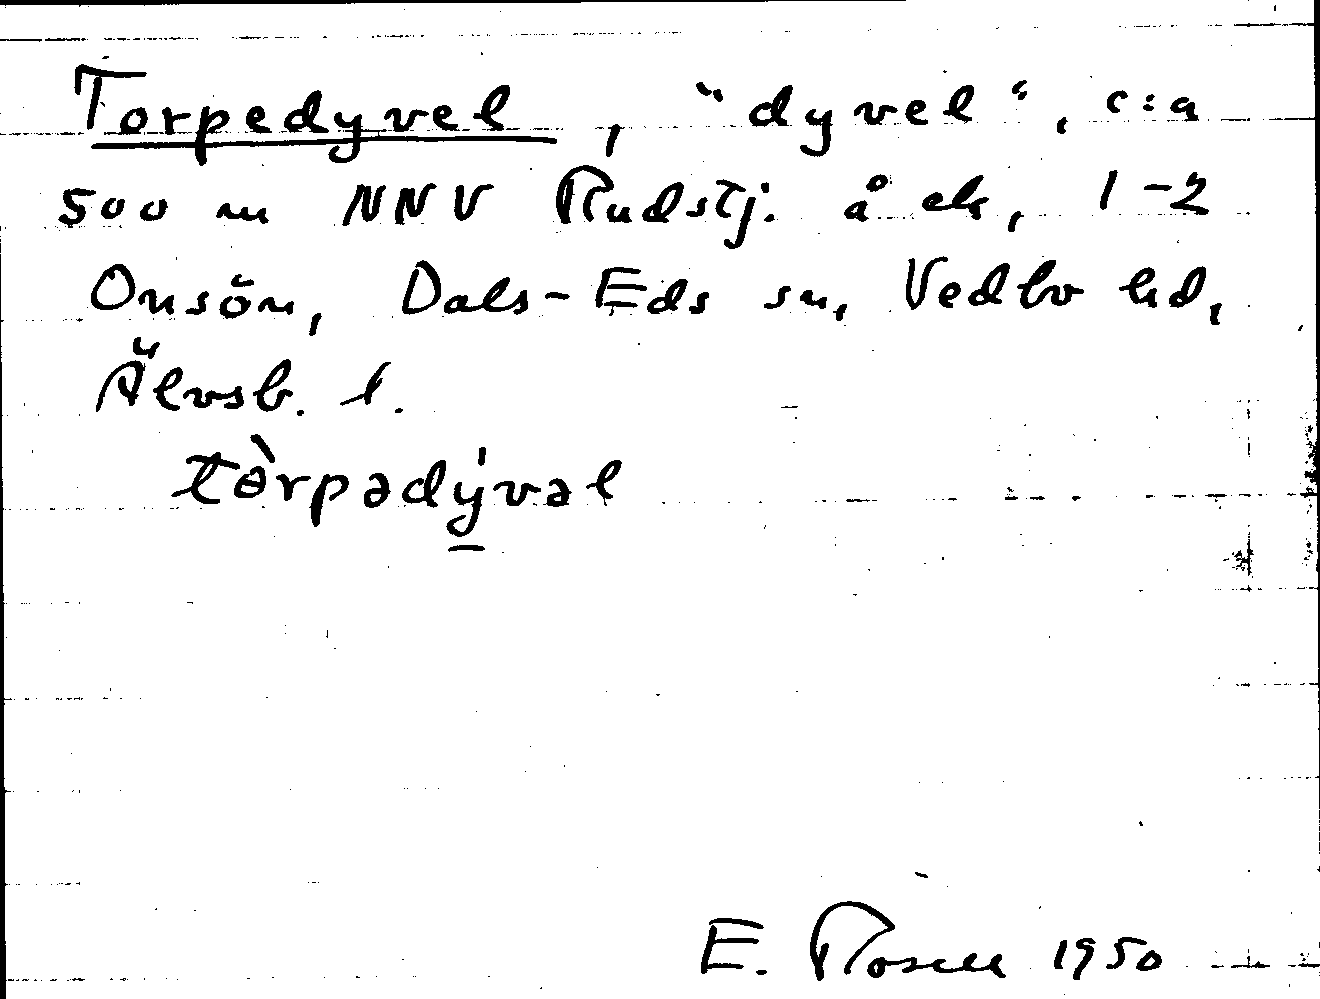 Torpedyvel, "dyvel", c:a
500 m NNV Rudstj. å ek, 1-2
Onsön, Dals-Eds sn, Vedbo hd,
Älvsb. l.
tòrpədý̱vəl
E. Rosell 1950